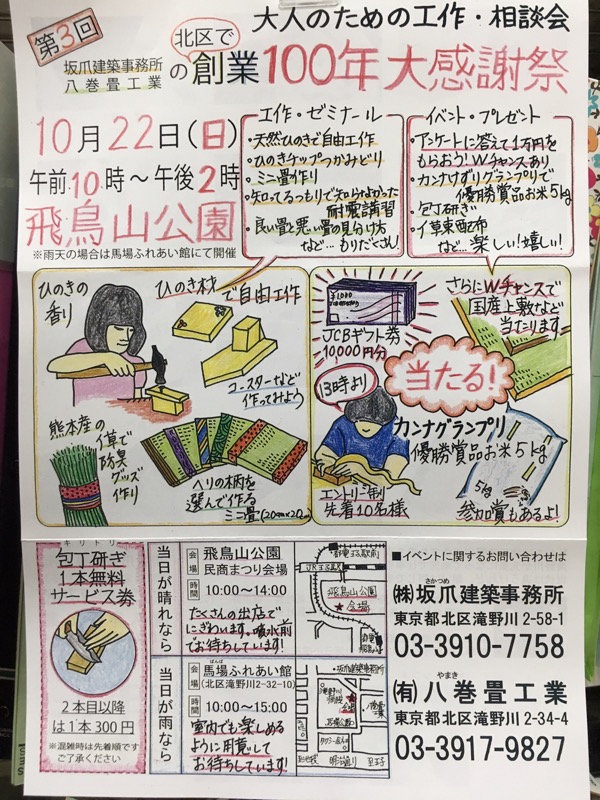 第3回
大人のための工作・相談会
坂爪建築事務所
八巻畳工業
の
北区で
創業100年大感謝祭
10月22日(日)
午前10時〜午後2時
飛鳥山公園
※雨天の場合は馬場ふれあい館にて開催
工作・ゼミナール
・天然ひのきで自由工作
・ひのきチップつかみどり
・ミニ畳作り
・知ってるつもりで知らなかった
耐震講習
・良い畳と悪い畳の見分け方
など…もりだくさん!
イベント・プレゼント
・アンケートに答えて1万円を
もらおう!Wチャンスあり
・カンナけずりグランプリで
優勝賞品お米5kg
・包丁研ぎ
・イ草束配布
など…楽しい!嬉しい!
ひのきの
香り
ひのき材で自由工作
コースターなど
作ってみよう
熊本産の
イ草で
防臭
グッズ
作り
ヘリの柄を
選んで作る
ミニ畳
¥1,000
JCBギフト券
10000円分
さらにWチャンスで
国産上敷など
当たります
当たる!
13時より
カンナグランプリ
優勝賞品お米5kg
エントリー制
先着10名様
5kg
参加賞もあるよ!
キリトリ
包丁研ぎ
1本無料
サービス券
2本目以降
は1本300円
※混雑時は先着順です
ご了承ください
当日が晴れなら
会場
飛鳥山公園
民商まつり会場
時間
10:00〜14:00
たくさんの出店で
にぎわいます。噴水前
でお待ちしています!
JR王子駅
飛鳥山公園
★会場
当日が雨なら
会場
ばんば
馬場ふれあい館
(北区滝野川2-32-10)
時間
10:00〜15:00
室内でも楽しめる
ように用意して
お待ちしています!
坂爪建築事務所
明治通り
至王子
■イベントに関するお問い合わせは
さかつめ
㈱坂爪建築事務所
東京都北区滝野川2-58-1
03-3910-7758
やまき
㈲八巻畳工業
東京都北区滝野川2-34-4
03-3917-9827